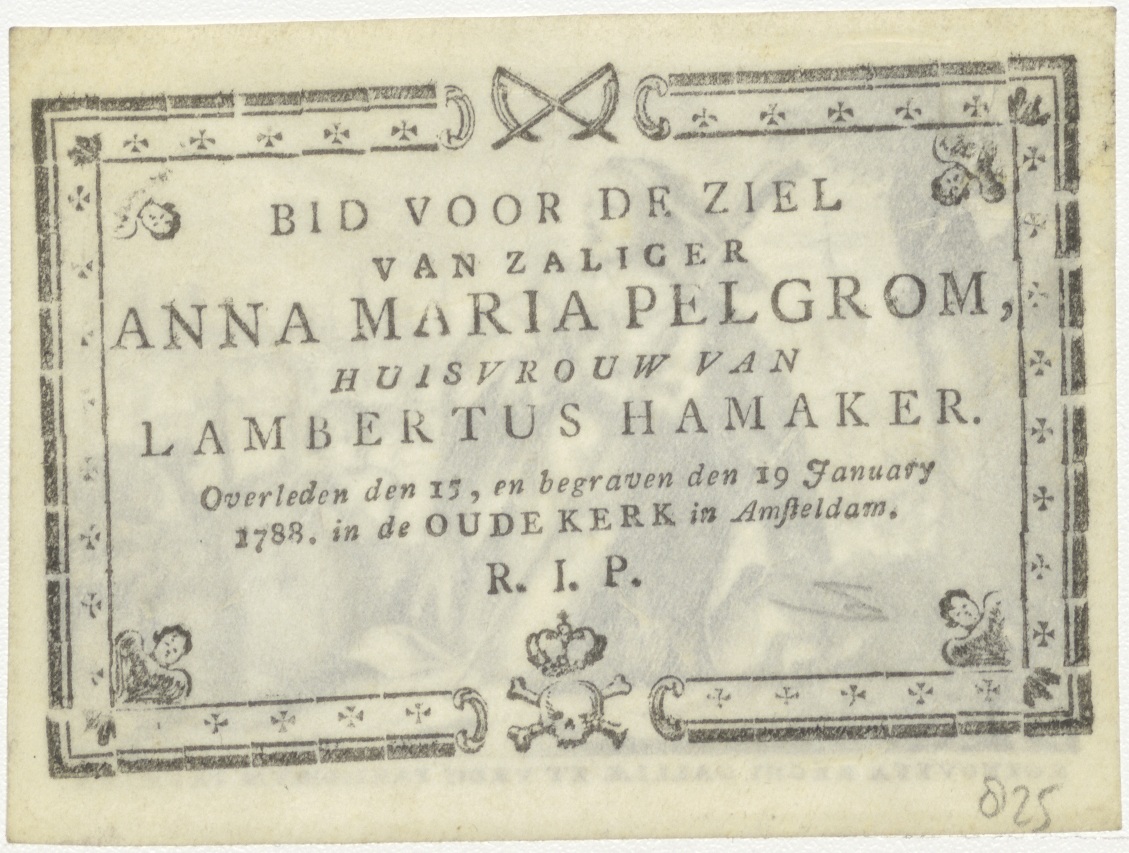 BID VOOR DE ZIEL
VAN ZALIGER
ANNA MARIA PELGROM,
HUISVROUW VAN
LAMBERTUS HAMAKER.
Overleden den 15, en begraven den 19 January
1788. in de OUDE KERK in Amſteldam.
R. I. P.
825